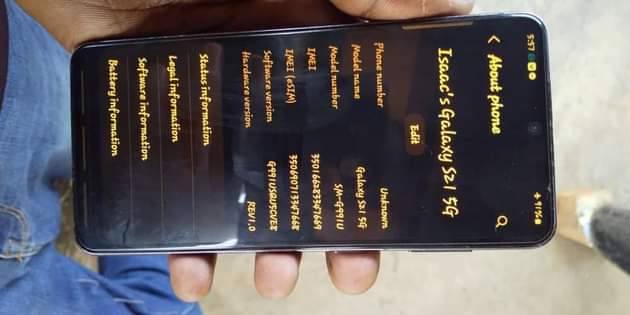 5:57
91%
< About phone
Isaac's Galaxy S21 5G
Edit
Phone number Unknown
Model name Galaxy S21 5G
Model number SM-G991U
IMEI
IMEI (eSIM)
Software version
Hardware version REV1.0
Status information
Legal information
Software information
Battery information